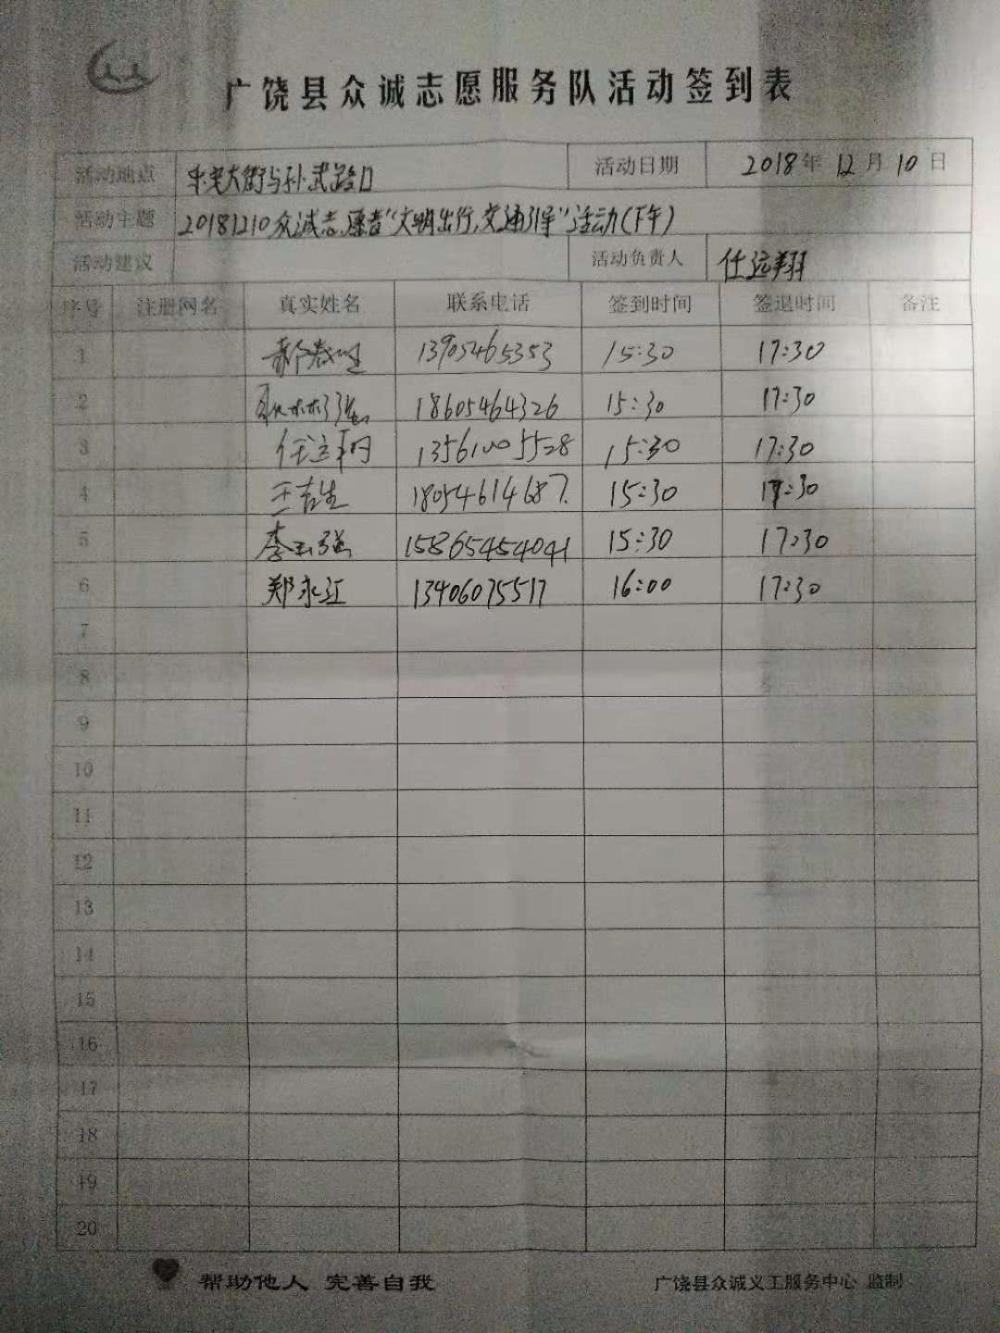 广饶县众诚志愿服务队活动签到表
活动地点 中央大街与孙武路口 活动日期 2018年12月10日
活动主题 20181210众诚志愿者“文明出行,交通引导”活动(下午)
活动建议 活动负责人 任远翔
序号 注册网名 真实姓名 联系电话 签到时间 签退时间 备注
1 13905465353 15:30 17:30
2 18605464326 15:30 17:30
3 13561005528 15:30 17:30
4 王吉生 18054614687. 15:30 17:30
5 李玉强 15865454041 15:30 17:30
6 郑永江 13406075517 16:00 17:30
7
8
9
10
11
12
13
14
15
16
17
18
19
20
帮助他人 完善自我 广饶县众诚义工服务中心 监制